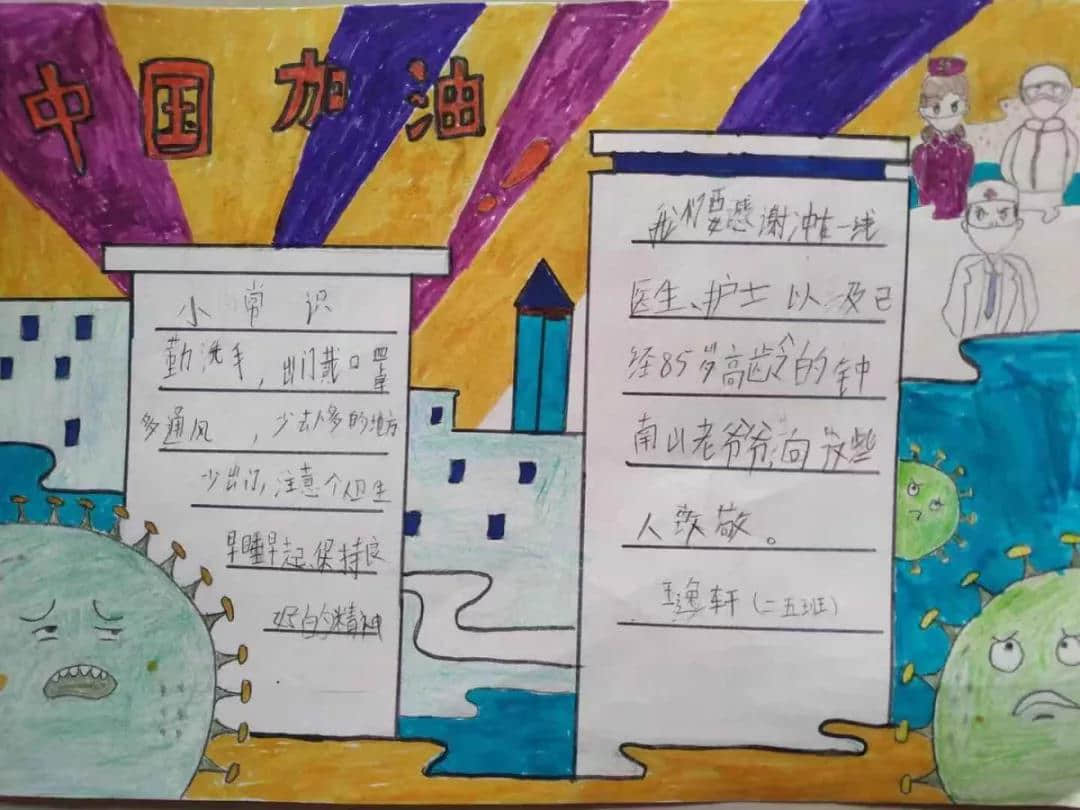 中国加油!
小常识
勤洗手,出门戴口罩
多通风,少去人多的地方
少出门,注意个人卫生
早睡早起、保持良
好的精神
我们要感谢冲在一线
医生、护士以及已
经85岁高龄的钟
南山老爷爷,向这些
人致敬。
王逸轩(二五班)